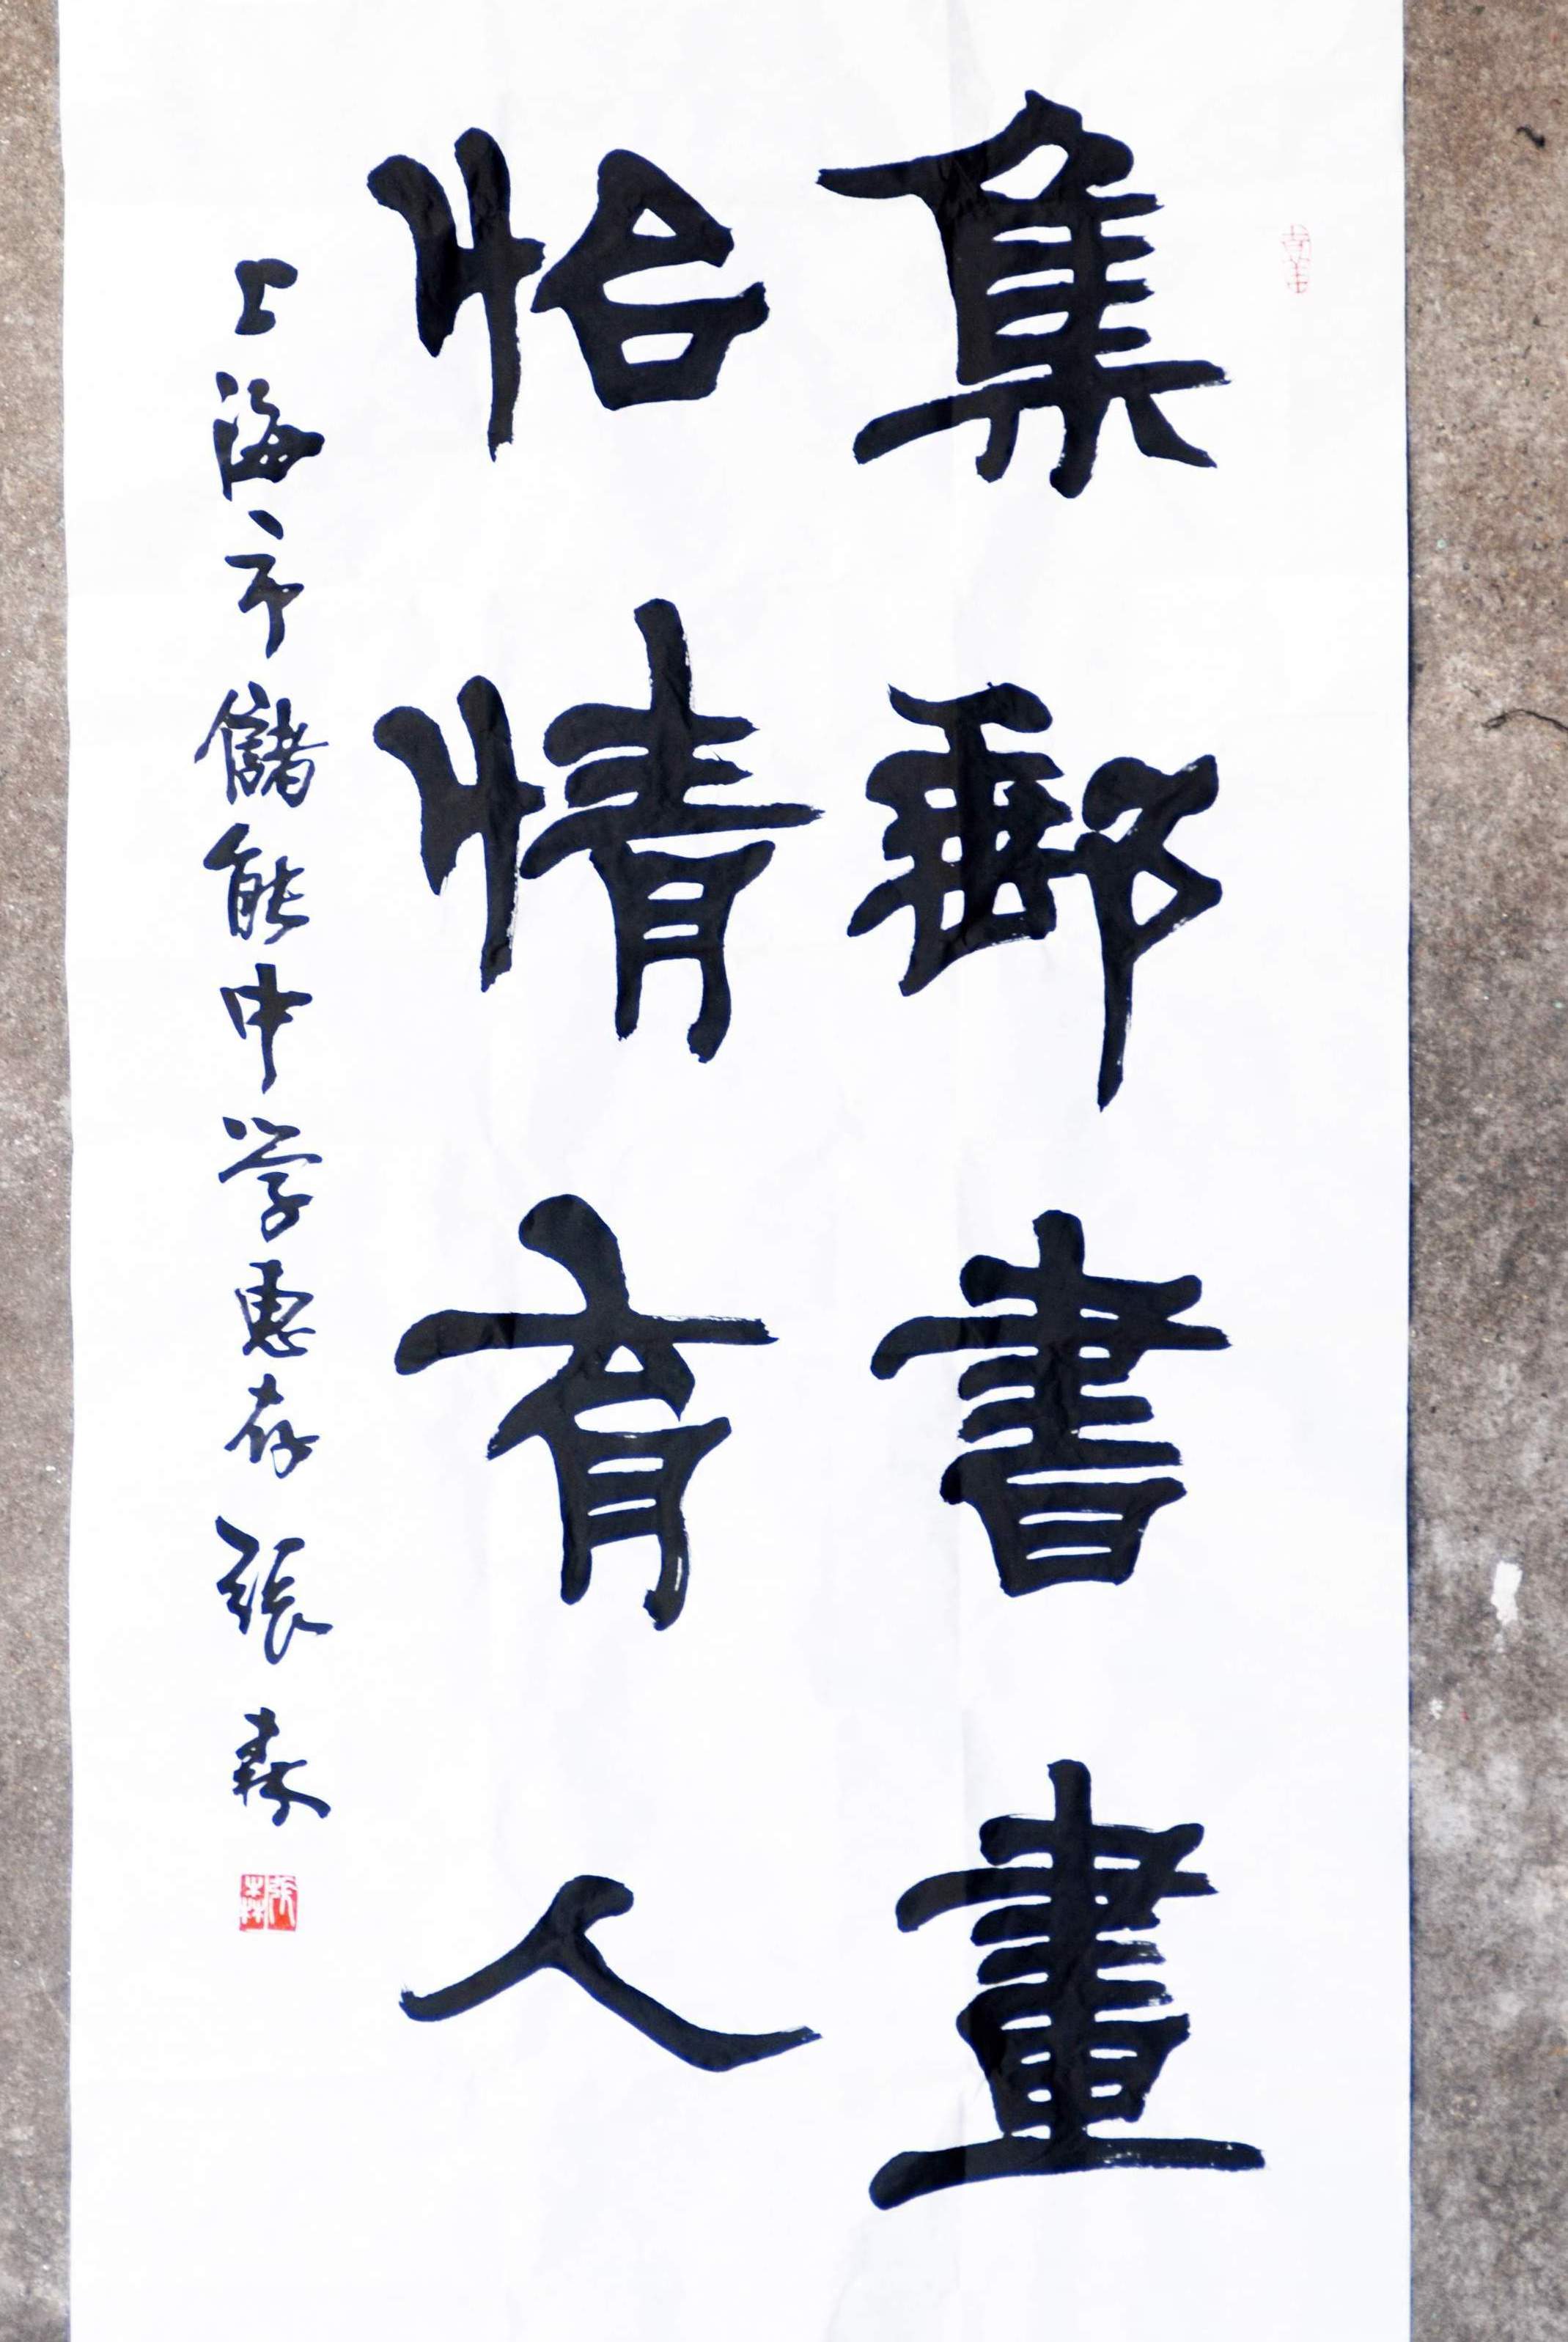 集郵書畫
怡情育人
上海市儲能中学惠存 張森
張森